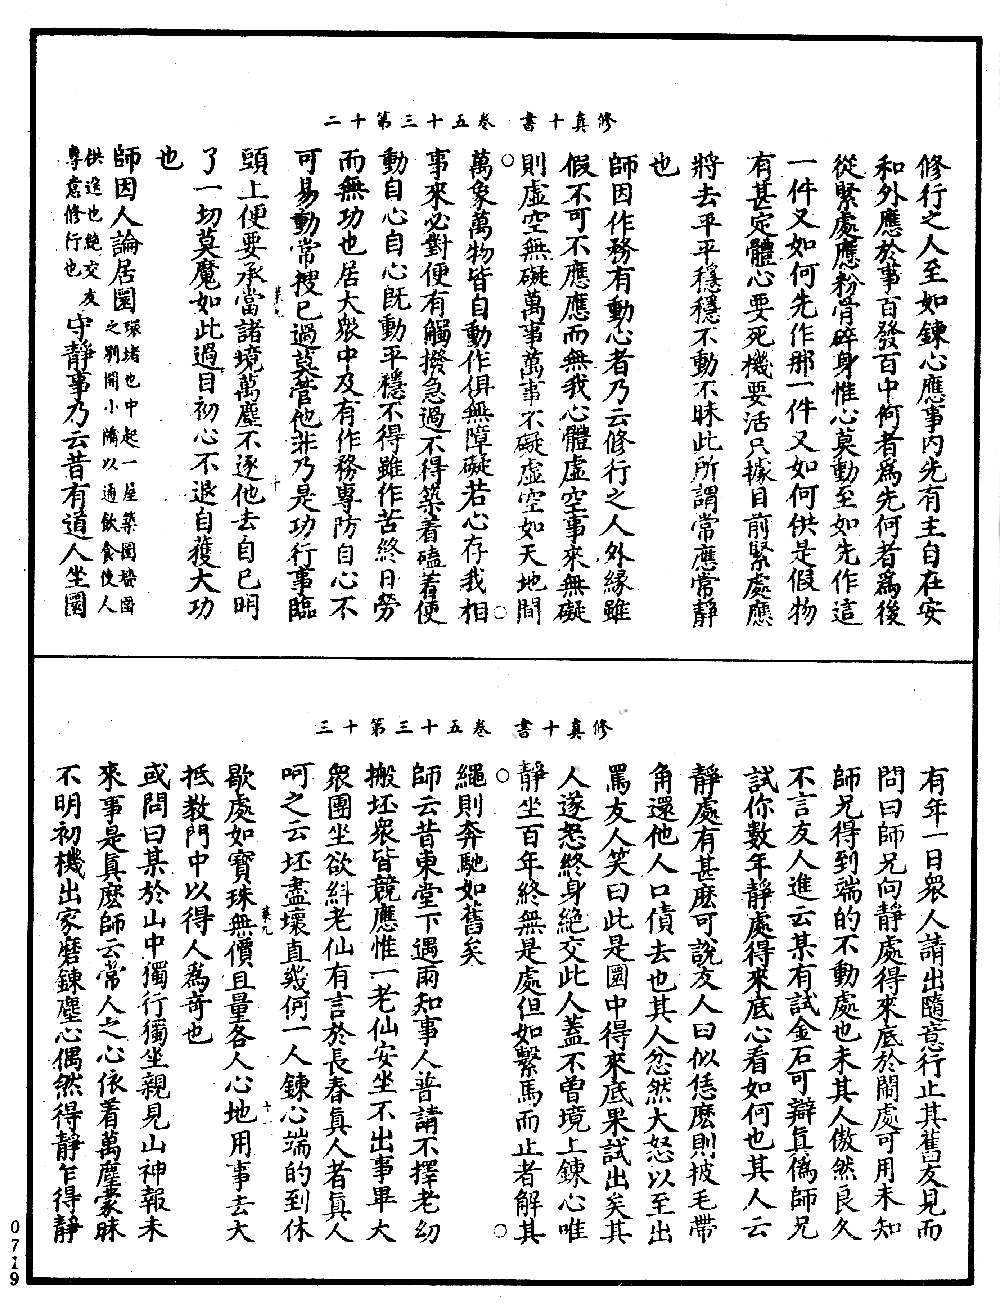 修真十書 卷五十三第十二
修行之人至如鍊心應事内先有主自在安
和外應於事百發百中何者為先何者為後
從緊處應粉骨碎身惟心莫動至如先作這
一件又如何先作那一件又如何供是假物
有甚定體心要死機要活只據目前緊處應
將去平平穩穩不動不昧此所謂常應常靜
也
師因作務有動心者乃云修行之人外縁雖
假不可不應應而無我心體虚空事來無礙
則虚空無礙萬事萬事不礙虚空如天地間
萬象萬物皆自動作俱無障礙若心存我相
事來必對便有觸撥急過不得築着磕着便
動自心自心既動平穩不得雖作苦終日勞
而無功也居大衆中及有作務專防自心不
可易動常搜已過莫管他非乃是功行事臨
頭上便要承當諸境萬塵不逐他去自已明
了一切莫魔如此過目初心不退自獲大功
也
師因人論居圜環堵也中起一屋築圜牆圜之别開小牖以通飲食使人供送也絶交友專意修行也守靜事乃云昔有道人坐圜
修真十書 卷五十三第十三
有年一日衆人請出隨意行止其舊友見而
問曰師兄向靜處得來底於閙處可用未知
師兄得到端的不動處也未其人傲然良久
不言友人進云某有試金石可辯真僞師兄
試你數年靜處得來底心看如何也其人云
靜處有甚麽可說友人曰似恁麽則披毛帶
角還他人口債去也其人忿然大怒以至出
罵友人笑曰此是圜中得來底果試出矣其
人遂怒終身絶交此人蓋不曽境上鍊心唯
靜坐百年終無是處但如繫馬而止者解其
繩則奔馳如舊矣
師云昔東堂下遇雨知事人普請不擇老幼
搬坯衆皆競應惟一老仙安坐不出事畢大
衆團坐欲糾老仙有言於長春真人者真人
呵之云坯盡壞直幾何一人鍊心端的到休
歇處如寶珠無價且量各人心地用事去大
抵教門中以得人為竒也
或問曰某於山中獨行獨坐親見山神報未
來事是真麽師云常人之心依着萬塵蒙昧
不明初機出家磨鍊塵心偶然得靜乍得靜
0719